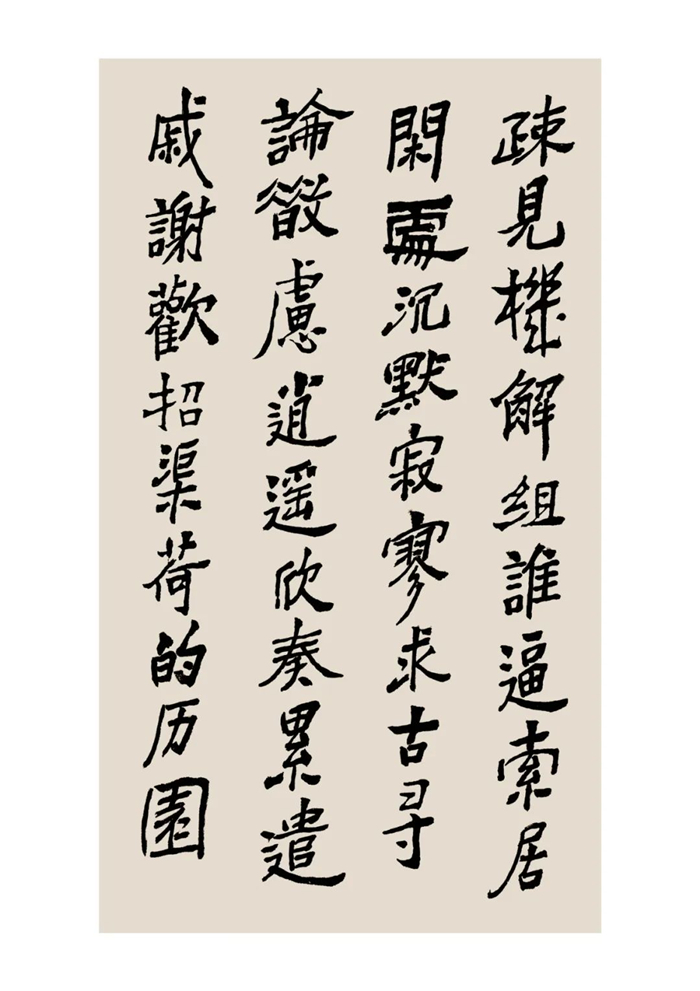 疎見機解組誰逼索居
閑處沉默寂寥求古尋
論散慮逍遥欣奏累遣
慼謝歡招渠荷的历園